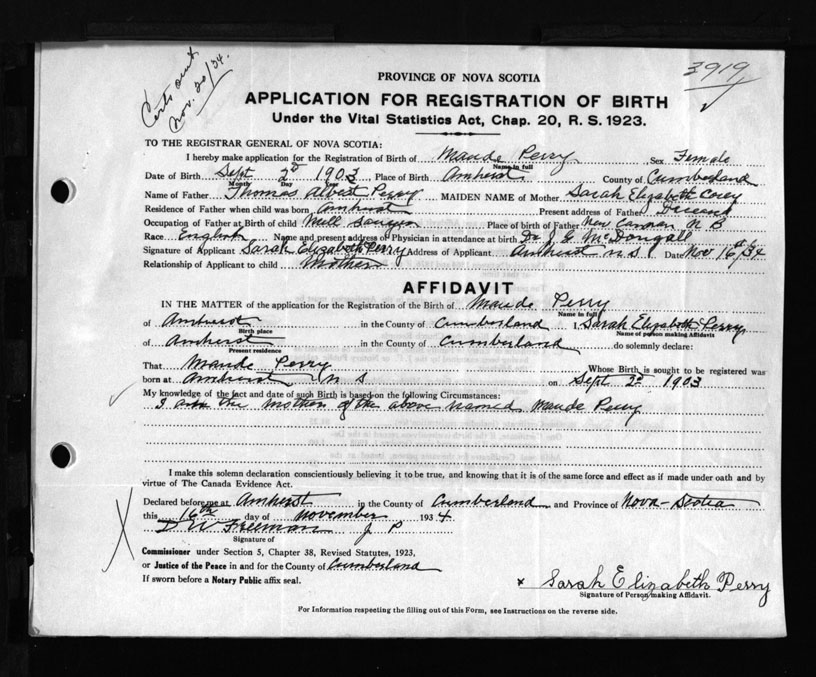 Certs sent
Nov. 20/34.
3919
PROVINCE OF NOVA SCOTIA
APPLICATION FOR REGISTRATION OF BIRTH
Under the Vital Statistics Act, Chap. 20, R. S. 1923.
TO THE REGISTRAR GENERAL OF NOVA SCOTIA:
I hereby make application for the Registration of Birth of Maude Perry Sex Female
Name in full
Date of Birth Sept 2nd 1903 Place of Birth Amherst County of Cumberland
Month Day Year
Name of Father Thomas Albert Perry MAIDEN NAME of Mother Sarah Elizabeth Corey
Residence of Father when child was born Amherst Present address of Father Deceased
Occupation of Father at Birth of child Mill Place of Birth of Father New Canaan N B
Race English Name and present address of Physician in attendance at birth Dr J G McDougall
Signature of Applicant Sarah Elizabeth Perry Address of Applicant Amherst N S Date Nov 16th 34
Relationship of Applicant to child Mother
AFFIDAVIT
IN THE MATTER of the application for the Registration of the Birth of Maude Perry
Name in full
of Amherst in the County of Cumberland I, Sarah Elizabeth Perry
Birth place Name of person making Affidavit
of Amherst in the County of Cumberland do solemnly declare:
Present residence
That Maude Perry Whose Birth is sought to be registered was
born at Amherst N S on Sept 2nd 1903
My knowledge of the fact and date of such Birth is based on the following Circumstances:
I am the mother of the above named Maude Perry
I make this solemn declaration conscientiously believing it to be true, and knowing that it is of the same force and effect as if made under oath and by
virtue of The Canada Evidence Act.
Declared before me at Amherst in the County of Cumberland and Province of Nova-Scotia
this 16th day of November 1934
D W Freeman J P
Signature of
Commissioner under Section 5, Chapter 38, Revised Statutes, 1923,
or Justice of the Peace in and for the County of Cumberland
If sworn before a Notary Public affix seal.
x Sarah Elizabeth Perry
Signature of Person making Affidavit.
For Information respecting the filling out of this Form, see Instructions on the reverse side.